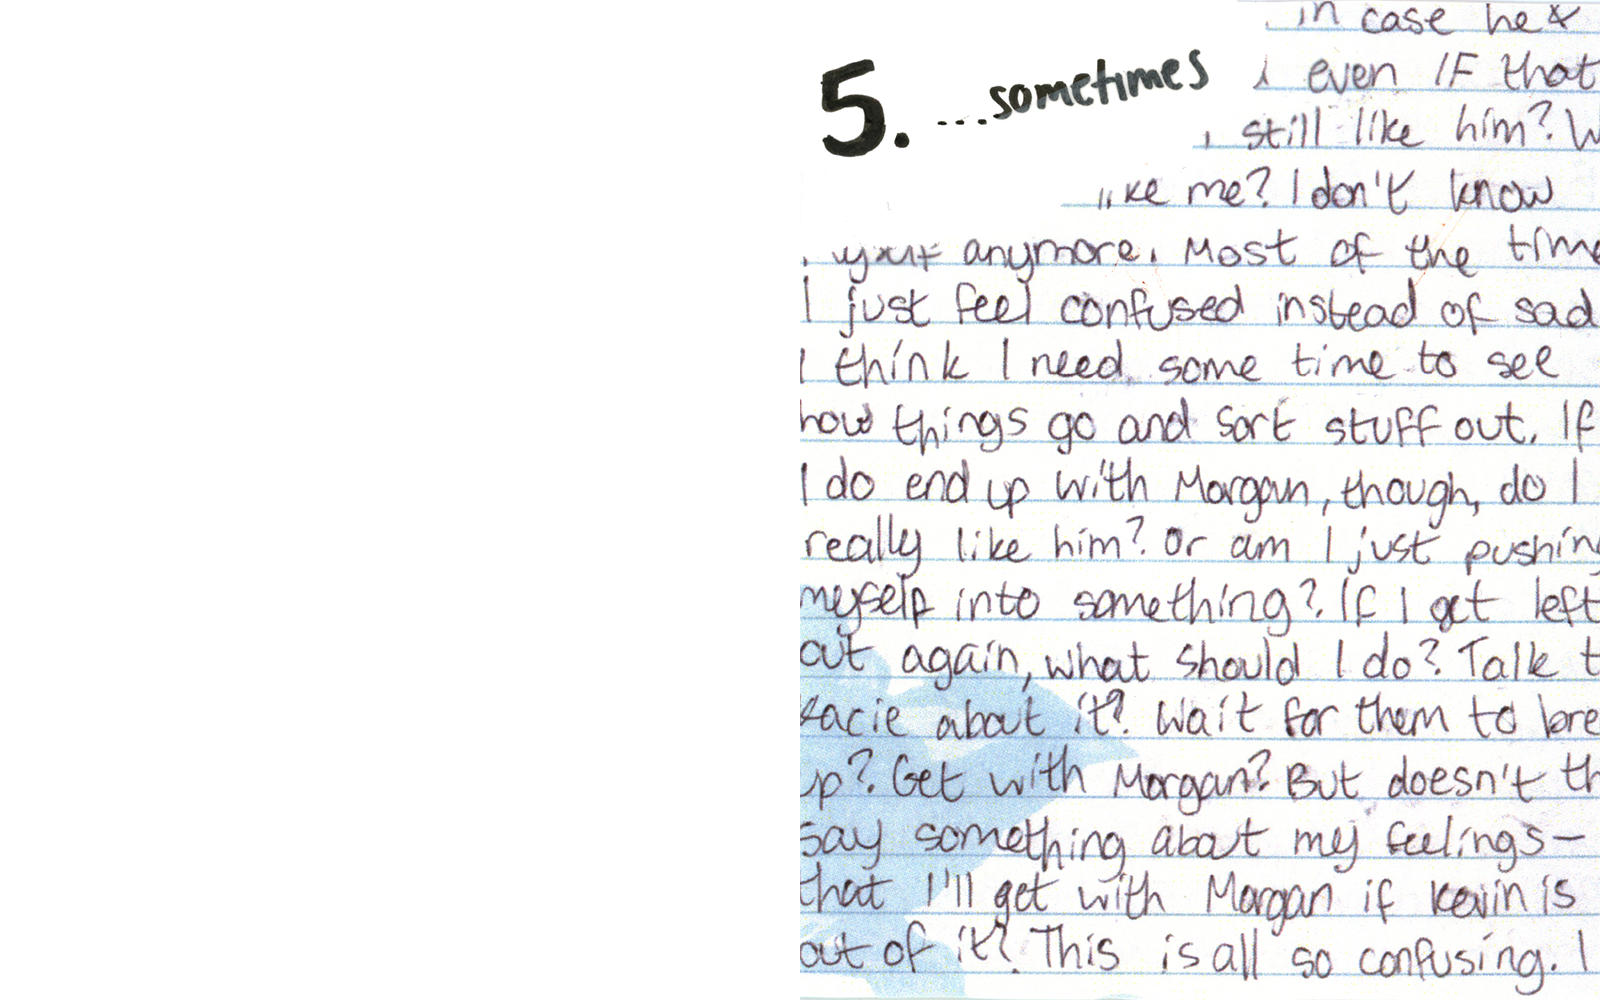 5. ...sometimes
in case he &
even IF that
still like him? W
ke me? I don't know
anymore. Most of the time
I just feel confused instead of sad
I think I need some time to see
how things go and sort stuff out. If
I do end up with Morgan, though, do I
really like him? Or am I just pushing
myself into something? If I get left
out again, what should I do? Talk t
Kacie about it? Wait for them to bre
up? Get with Morgan? But doesn't th
say something about my feelings—
that I'll get with Morgan if Kevin is
out of it? This is all so confusing. I